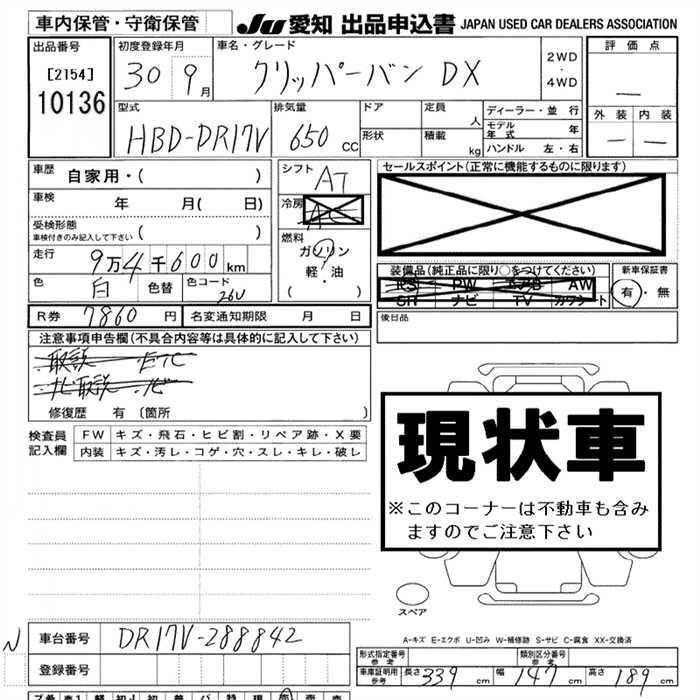 車内保管・守衛保管 JU 愛知 出品申込書 JAPAN USED CAR DEALERS ASSOCIATION
出品番号 初度登録年月 車名・グレード 評価点
[2154] 30 9月 クリッパーバン DX 2WD・4WD
10136
型式 排気量 ドア 定員 人 ディーラー・並行 外装 内装
HBD-DR17V 650cc 形状 積載 kg モデル年式 年
ハンドル 左・右
車歴 自家用・( ) シフト AT セールスポイント(正常に機能するものに限ります)
車検 年 月( 日) 冷房 AC
受検形態
車検付きのみ記入して下さい ( ) 燃料 ガソリン
走行 9万4千600km 軽・油 装備品(純正品に限り○をつけてください) 新車保証書
色 白 色替 色コード 26U ( ) PW AW 有・無
ナビ TV
R券 7860円 名変通知期限 月 日 後日品
注意事項申告欄(不具合内容等は具体的に記入して下さい)
取説 ETC
ナビ取説 ナビ
修復歴 有 〔箇所 〕
検査員記入欄 FW キズ・飛石・ヒビ割・リペア跡・X要
内装 キズ・汚レ・コゲ・穴・スレ・キレ・破レ
現状車
※このコーナーは不動車も含み
ますのでご注意下さい
スペア
A-キズ E-エクボ U-凹み W-補修跡 S-サビ C-腐食 XX-交換済
N 車台番号 DR17V-288842
登録番号
形式指定番号 参考 類別区分番号 参考
車庫証明用 参考 長さ 339cm 幅 147cm 高さ 189cm